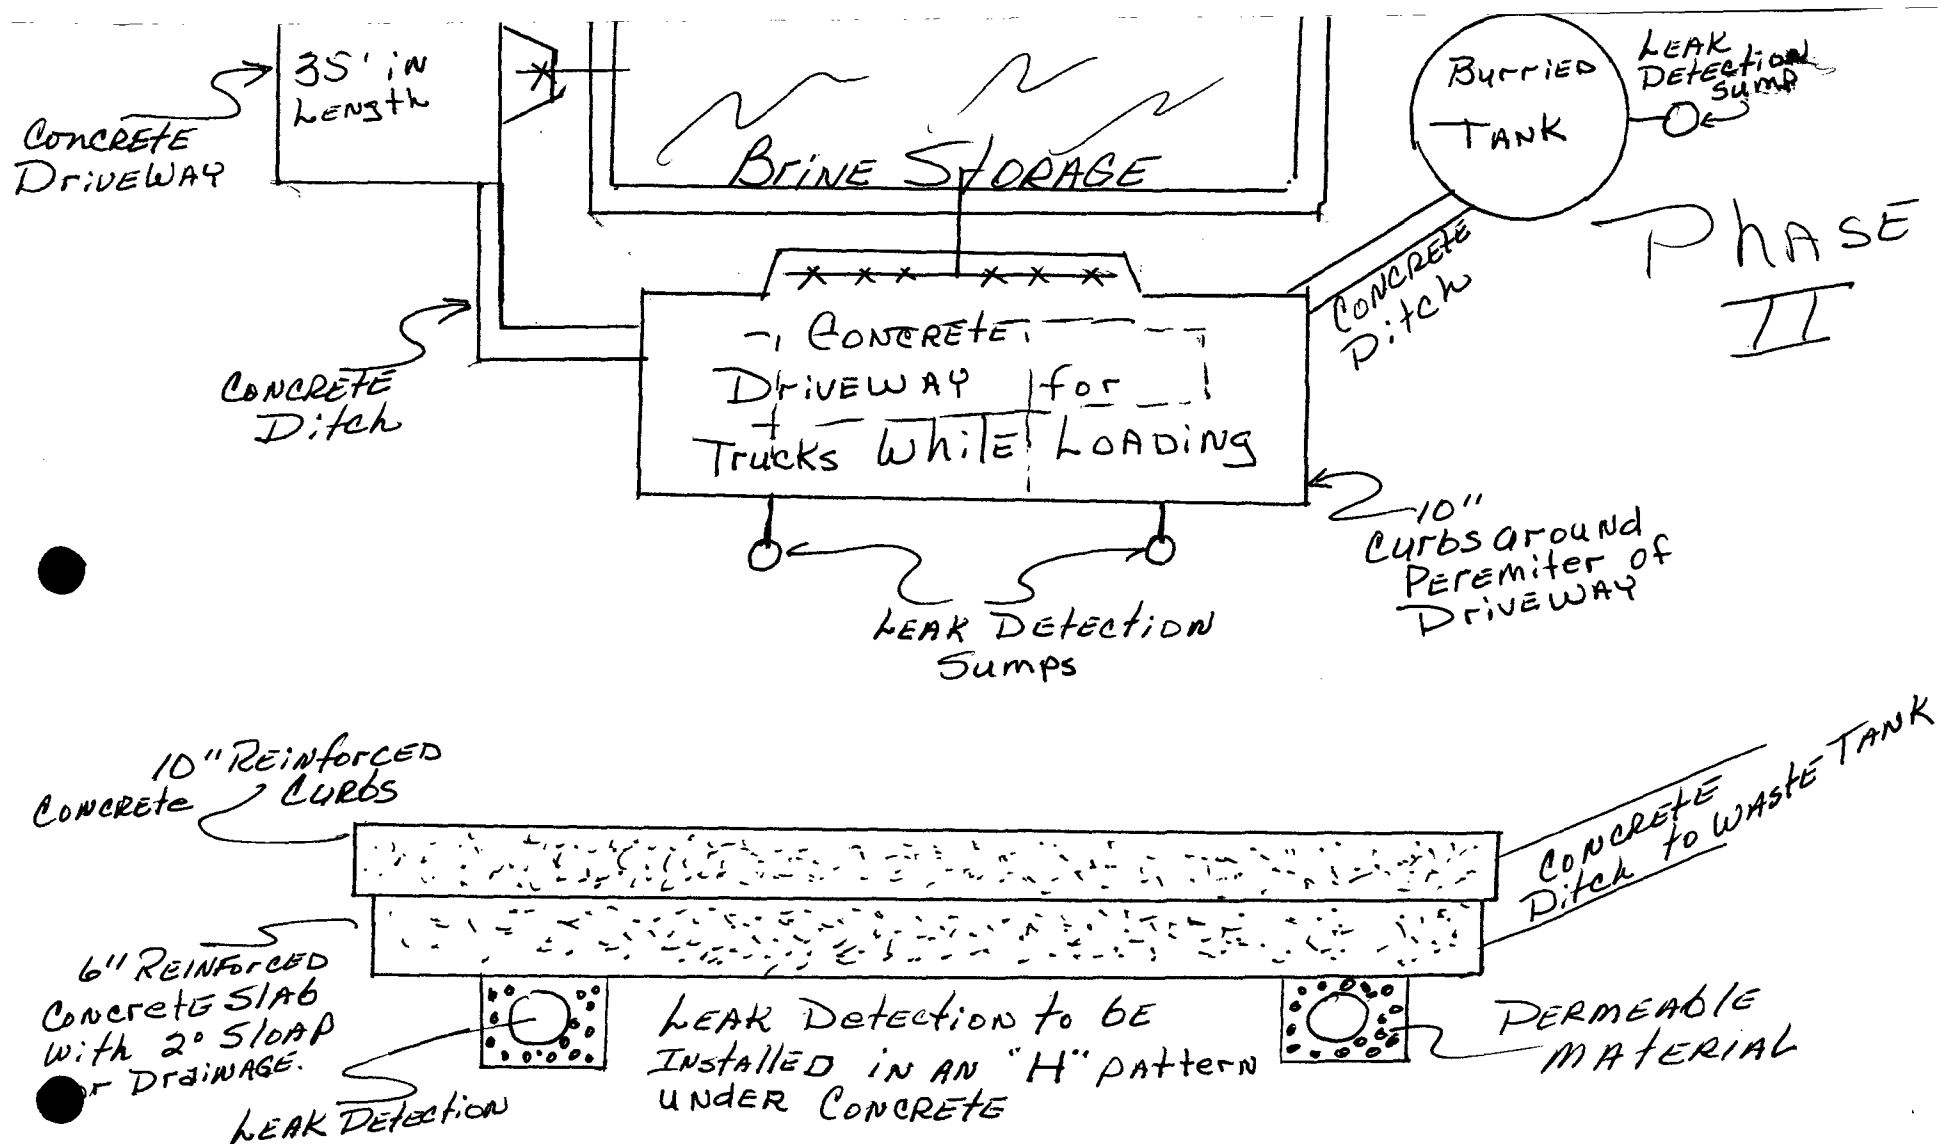 35' in
Length
Concrete
Driveway
Brine Storage
Burried
Tank
Leak
Detection
Sump
Phase
II
Concrete
Ditch
Concrete
Ditch
Concrete
Driveway for
Trucks While Loading
10"
Curbs around
Peremiter of
Driveway
Leak Detection
Sumps
10" Reinforced
Concrete Curbs
Concrete
Ditch to Waste Tank
6" Reinforced
Concrete Slab
with 2° Sloap
Drainage.
Leak Detection
Leak Detection to be
Installed in an "H" pattern
under Concrete
Permeable
Material